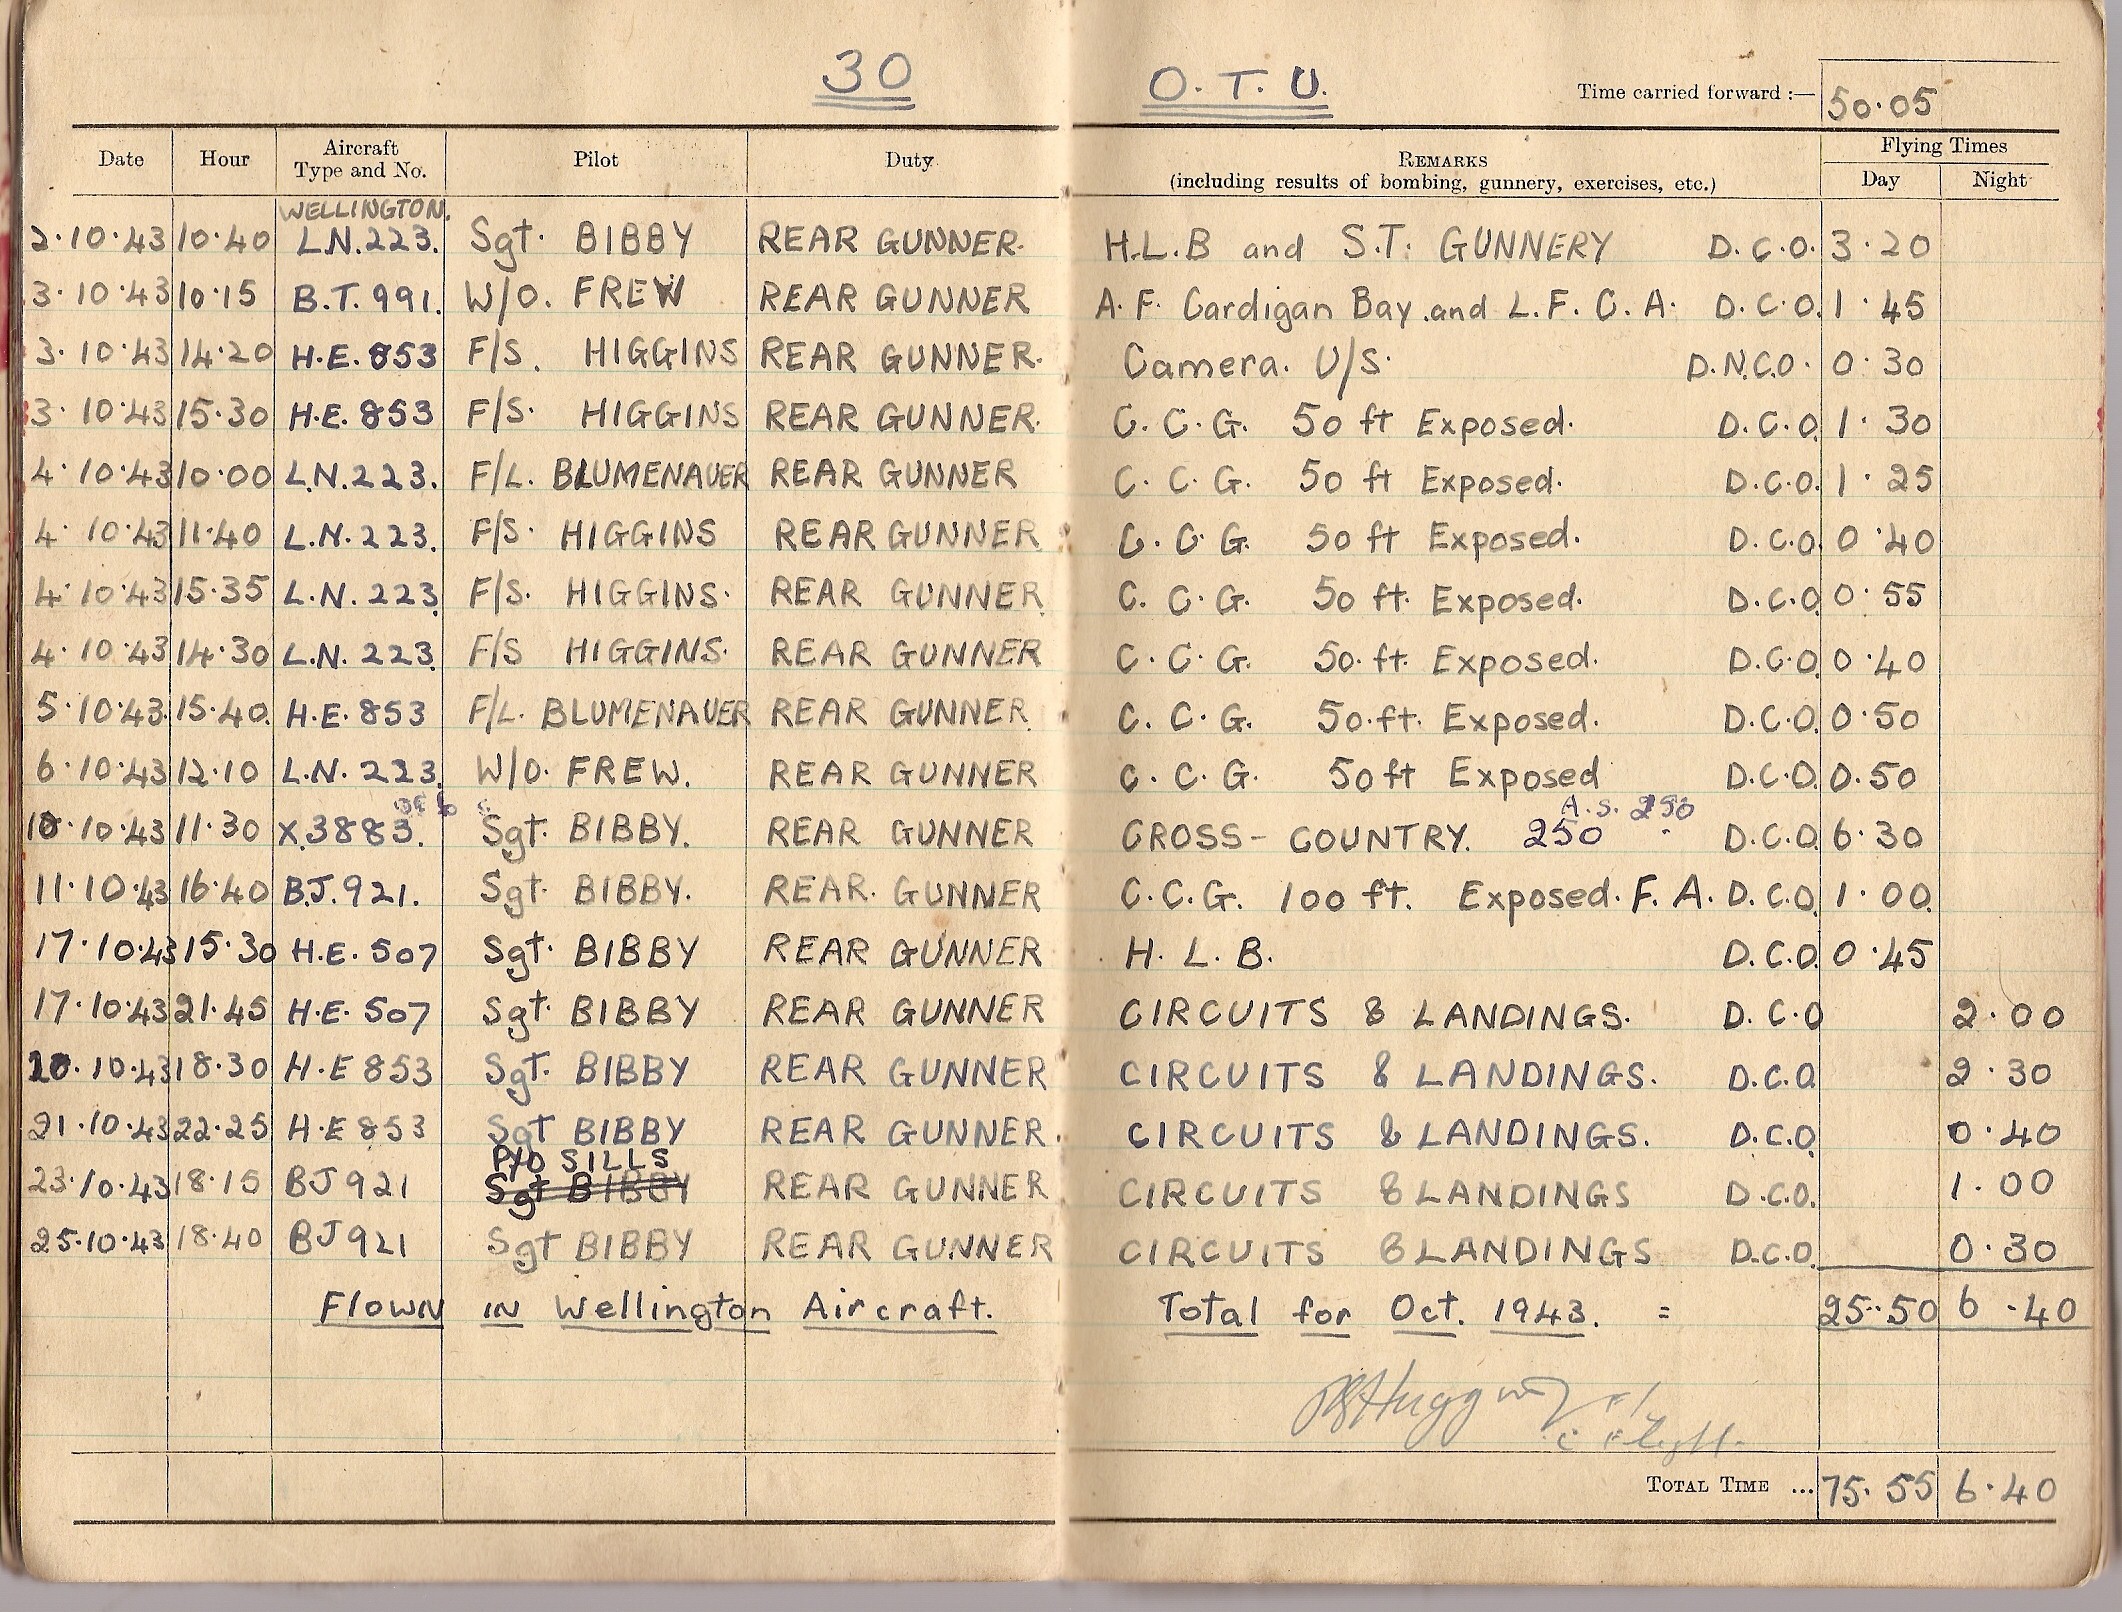 30 O. T. U. Time carried forward :— 50·05
Date Hour Aircraft Type and No. Pilot Duty REMARKS (including results of bombing, gunnery, exercises, etc.) Flying Times Day Night
WELLINGTON.
2·10·43 10·40 L.N.223. Sgt. BIBBY REAR GUNNER. H.L.B and S.T. GUNNERY D.C.O. 3·20
3·10·43 10·15 B.T. 991. W/O. FREW REAR GUNNER A.F. Cardigan Bay and L.F.C.A. D.C.O. 1·45
3·10·43 14·20 H.E. 853 F/S. HIGGINS REAR GUNNER. Camera. U/S. D.N.C.O. 0·30
3·10·43 15·30 H.E. 853 F/S. HIGGINS REAR GUNNER. C.C.G. 50 ft Exposed. D.C.O. 1·30
4·10·43 10·00 L.N.223. F/L. BLUMENAUER REAR GUNNER C.C.G. 50 ft Exposed. D.C.O. 1·25
4·10·43 11·40 L.N.223. F/S. HIGGINS REAR GUNNER C.C.G. 50 ft Exposed. D.C.O. 0·40
4·10·43 15·35 L.N.223. F/S. HIGGINS. REAR GUNNER C.C.G. 50 ft. Exposed. D.C.O 0·55
4·10·43 14·30 L.N. 223. F/S HIGGINS. REAR GUNNER C.C.G. 50.ft. Exposed. D.C.O 0·40
5·10·43 15·40. H.E. 853 F/L. BLUMENAUER REAR GUNNER C.C.G. 50.ft. Exposed. D.C.O. 0·50
6·10·43 12·10 L.N. 223. W/O. FREW. REAR GUNNER C.C.G. 50ft Exposed D.C.O. 0.50
A.S. 250
10·10·43 11·30 X.3883. Sgt. BIBBY. REAR GUNNER CROSS-COUNTRY. 250 D.C.O. 6·30
11·10·43 16·40 B.J. 921. Sgt. BIBBY. REAR. GUNNER C.C.G. 100 ft. Exposed. F.A. D.C.O. 1·00.
17·10·43 15·30 H.E. 507 Sgt. BIBBY REAR GUNNER H.L.B. D.C.O. 0·45
17·10·43 21·45 H.E. 507 Sgt. BIBBY REAR GUNNER CIRCUITS & LANDINGS. D.C.O 2·00
20·10·43 18·30 H.E 853 Sgt. BIBBY REAR GUNNER CIRCUITS & LANDINGS. D.C.O. 2·30
21·10·43 22·25 H.E 853 Sgt BIBBY REAR GUNNER. CIRCUITS & LANDINGS. D.C.O. 0·40
P/O SILLS
23·10·43 18·15 BJ 921 Sgt BIBBY REAR GUNNER CIRCUITS & LANDINGS D.C.O. 1·00
25·10·43 18·40 BJ 921 Sgt BIBBY REAR GUNNER CIRCUITS & LANDINGS D.C.O. 0·30
Flown in Wellington Aircraft. Total for Oct. 1943. = 25·50 6·40
TOTAL TIME ... 75·55 6·40